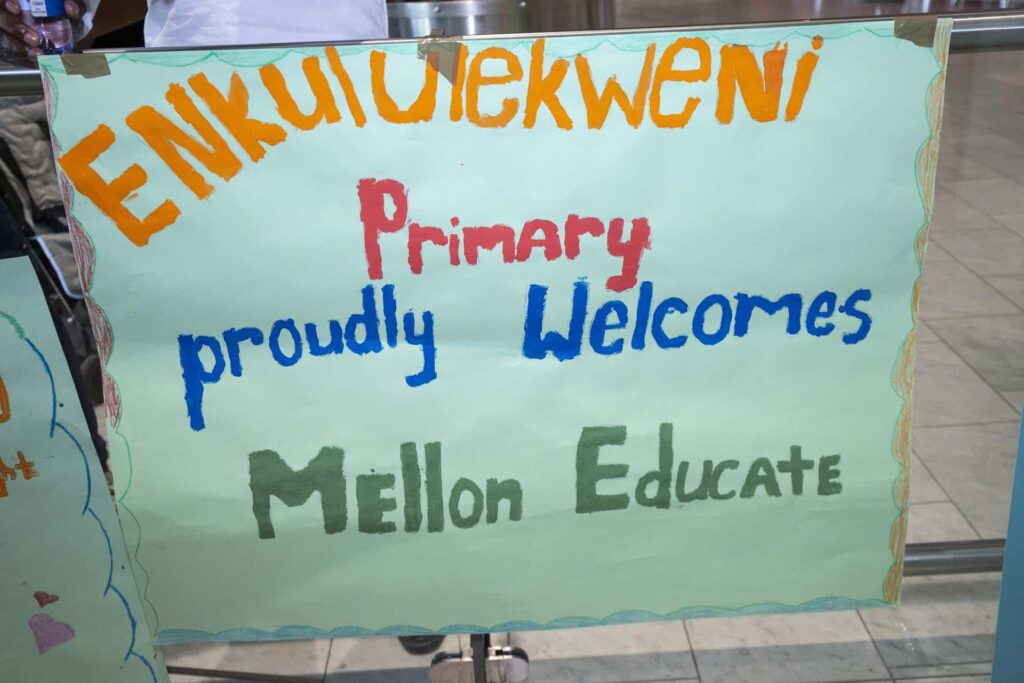 ENkulUlekweNi
Primary
proudly Welcomes
Mellon Educate